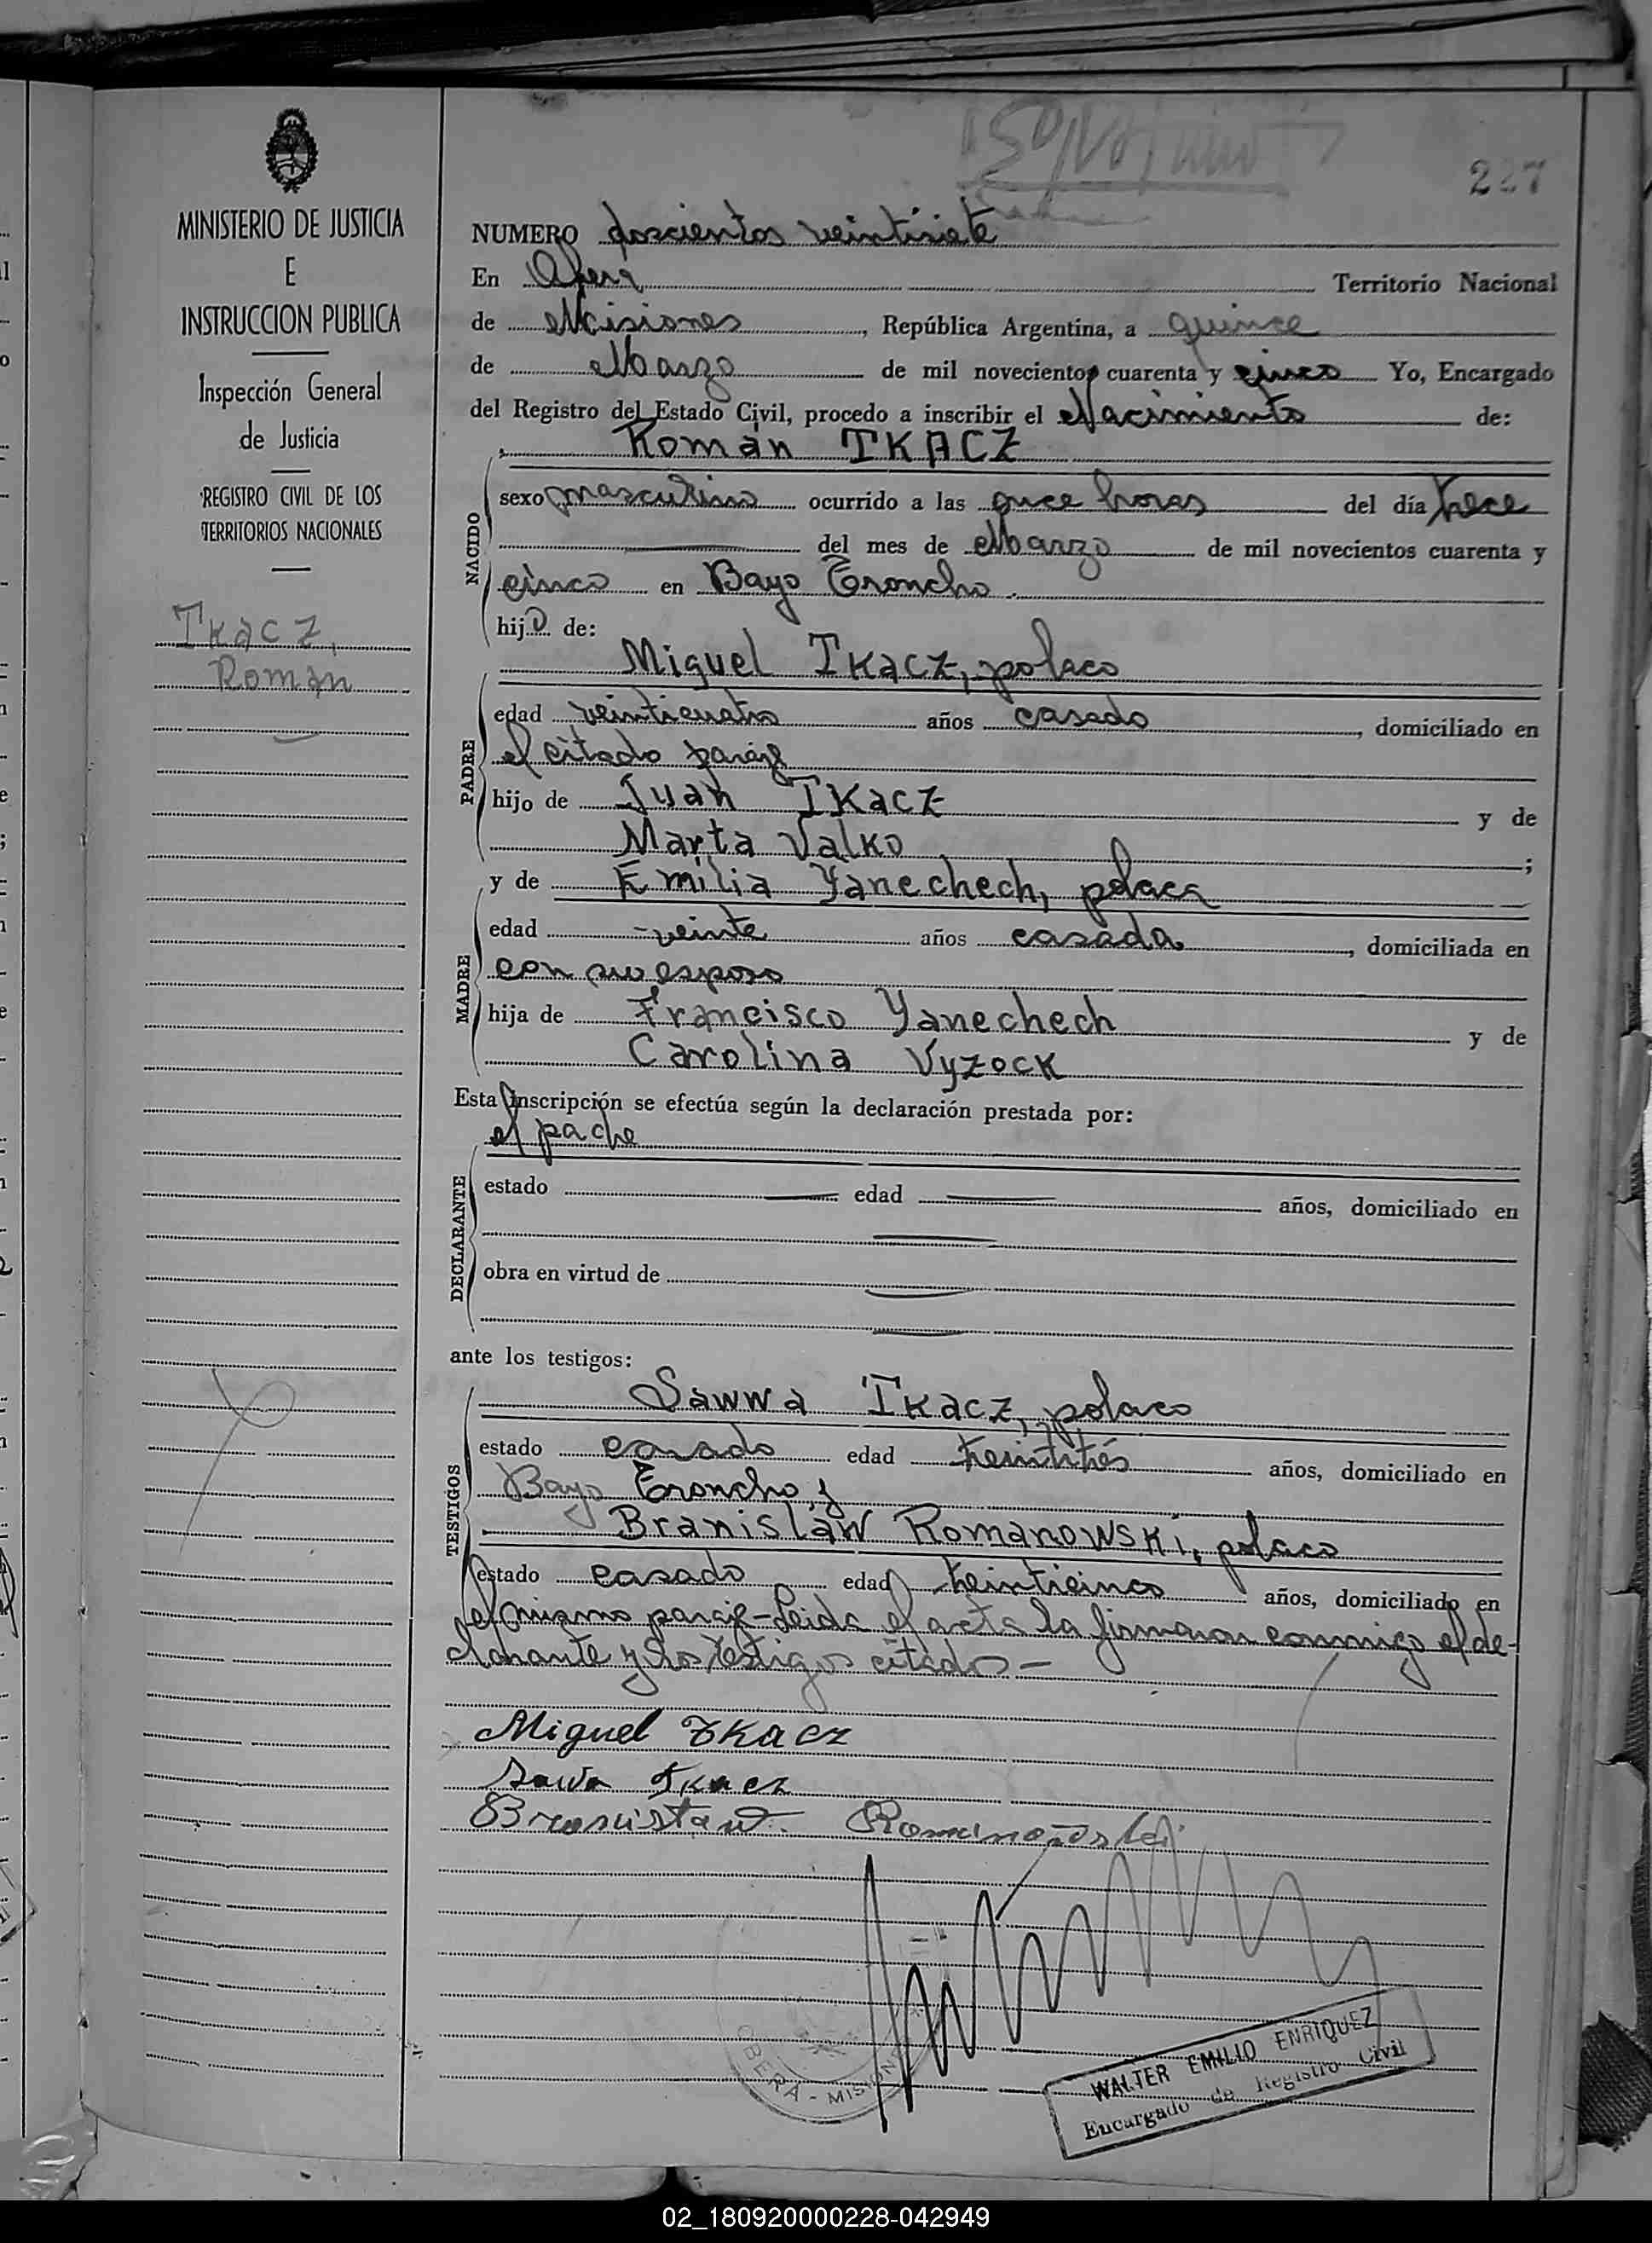 227
MINISTERIO DE JUSTICIA
E
INSTRUCCION PUBLICA
Inspección General
de Justicia
REGISTRO CIVIL DE LOS
TERRITORIOS NACIONALES
Tkacz,
Román
NUMERO doscientos veintisiete
En Oberá Territorio Nacional
de Misiones, República Argentina, a quince
de Marzo de mil novecientos cuarenta y cinco Yo, Encargado
del Registro del Estado Civil, procedo a inscribir el Nacimiento de:
Román TKACZ
NACIDO
sexo masculino ocurrido a las once horas del día trece
del mes de Marzo de mil novecientos cuarenta y
cinco en Bayo Troncho.
hijo de:
Miguel Tkacz, polaco
PADRE
edad veinticuatro años casado, domiciliado en
el citado paraje
hijo de Juan Tkacz y de
Marta Valko;
y de Emilia Yanechech, polaca
MADRE
edad veinte años casada, domiciliada en
con su esposo
hija de Francisco Yanechech y de
Carolina Vyzock
Esta inscripción se efectúa según la declaración prestada por:
el padre
DECLARANTE
estado edad años, domiciliado en
obra en virtud de
ante los testigos:
TESTIGOS
Sawwa Tkacz, polaco
estado casado edad treintitrés años, domiciliado en
Bayo Troncho y
Branislaw Romanowski, polaco
estado casado edad treinticinco años, domiciliado en
el mismo paraje - Leida el acta la firmaron conmigo el de-
clarante y los testigos citados -
Miguel Tkacz
Sawa Tkacz
OBERA - MISIONES
WALTER EMILIO ENRIQUEZ
Encargado de Registro Civil
02_180920000228-042949